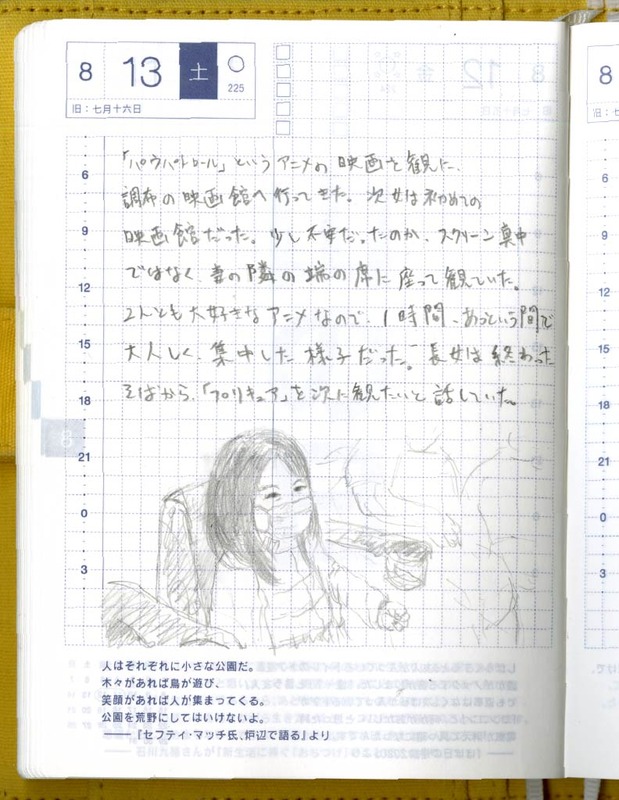 8 13 土
225
旧：七月十六日
「パウパトロール」というアニメの映画を観に、
調布の映画館へ行ってきた。次女は初めての
映画館だった。少し不安だったのか、スクリーン真中
ではなく、妻の隣の端の席に座って観ていた。
2人とも大好きなアニメなので、1時間、あっという間で
大人しく、集中した様子だった。長女は終わった
そばから、「プリキュア」を次に観たいと話していた。
6
9
12
15
18
21
0
3
8
人はそれぞれに小さな公園だ。
木々があれば鳥が遊び、
笑顔があれば人が集まってくる。
公園を荒野にしてはいけないよ。
——『セフティ・マッチ氏、炉辺で語る』より
8
6
9
12
15
18
21
0
3